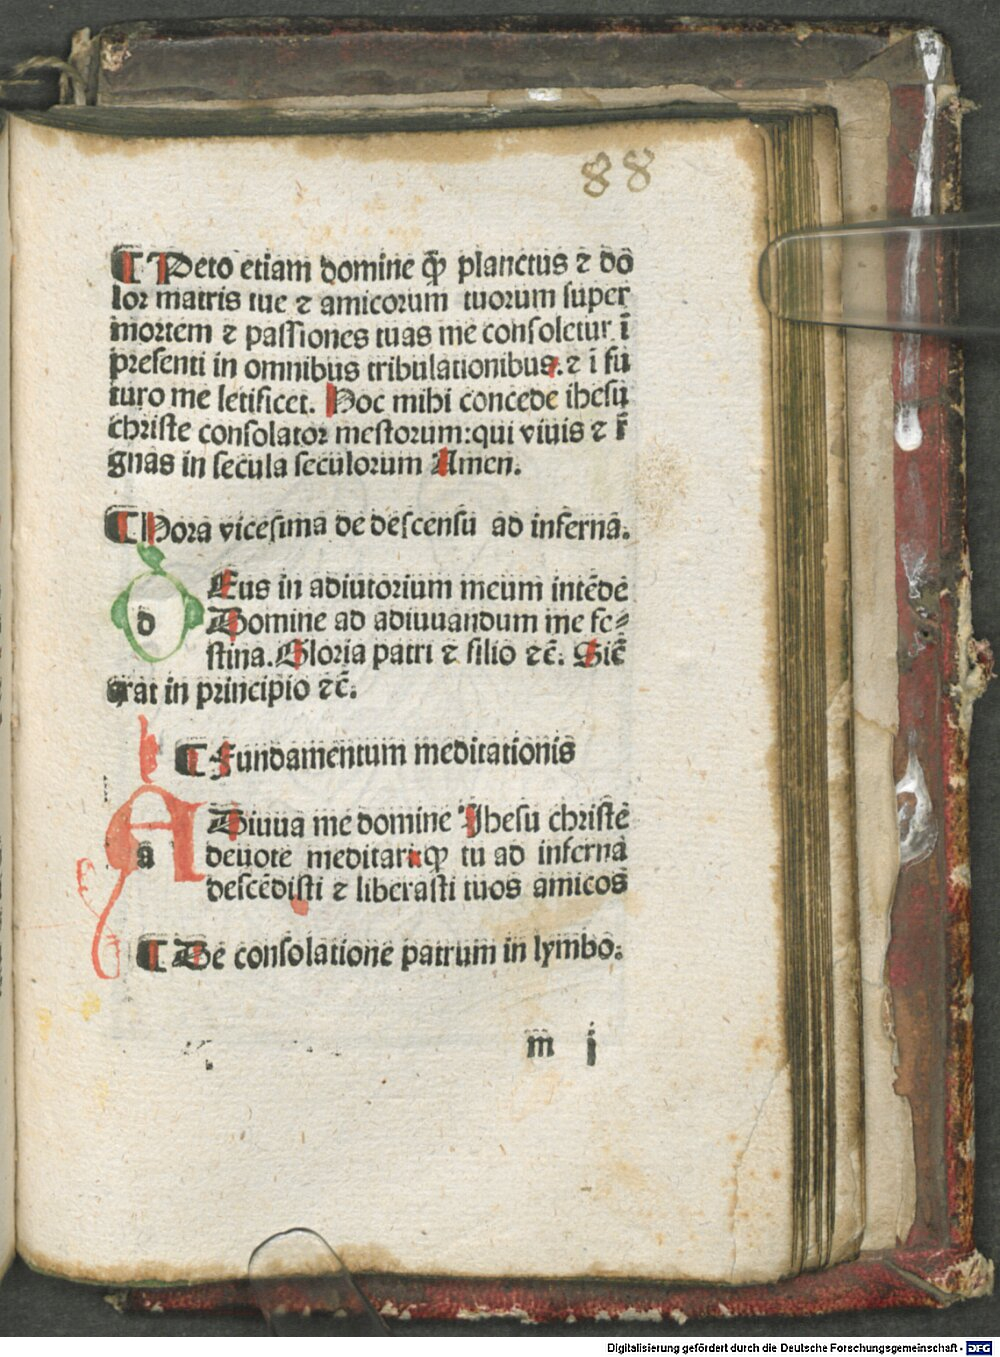 88
¶ Peto etiam domine ꝙ planctus ⁊ dō
lor matris tue ⁊ amicorum tuorum super
mortem ⁊ passiones tuas me consoletur ī
presenti in omnibus tribulationibus. ⁊ ī fu
turo me letificet. Hoc mihi concede ihesu
christe consolator mestorum: qui viuis ⁊ r̄
gnas in secula seculorum Amen.
¶ Hora vicesima de descensu ad infernā.
d Eus in adiutorium meum intēde
Domine ad adiuuandum me fe⸗
stina. Gloria patri ⁊ filio ⁊c̄. Sic̄
erat in principio ⁊c̄.
¶ Fundamentum meditationis
a Diuua me domine Jhesu christe
deuote meditari ꝙ tu ad infernā
descēdisti ⁊ liberasti tuos amicos
¶ De consolatione patrum in lymbo.
m j
Digitalisierung gefördert durch die Deutsche Forschungsgemeinschaft - DFG